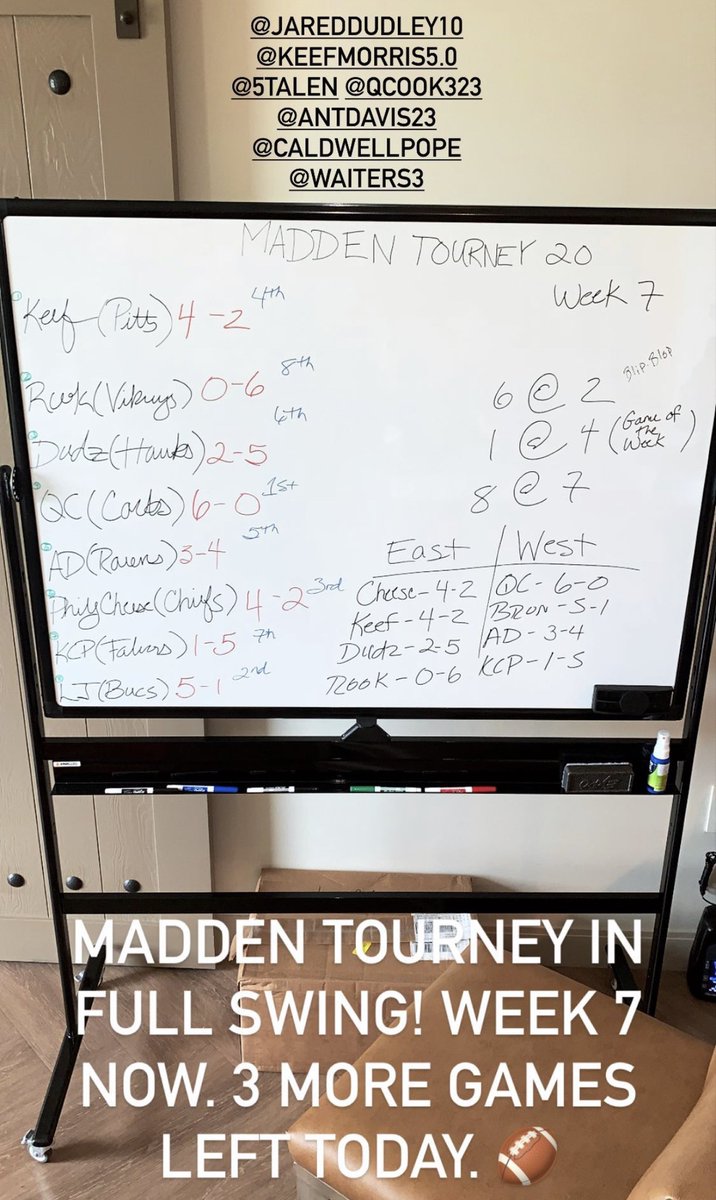 @JAREDDUDLEY10
@KEEFMORRIS5.0
@5TALEN @QCOOK323
@ANTDAVIS23
@CALDWELLPOPE
@WAITERS3
MADDEN TOURNEY 20
Week 7
1 Keef (Pitts) 4-2 4th
2 Rook (Vikings) 0-6 8th
Dudz (Hawks) 2-5 6th
QC (Cards) 6-0 1st
AD (Ravens) 3-4 5th
Philly Cheese (Chiefs) 4-2 3rd
KCP (Falcons) 1-5 7th
LJ (Bucs) 5-1 2nd
6 @ 2 Blip-Blop
1 @ 4 (Game of the Week)
8 @ 7
East West
Cheese-4-2 QC-6-0
Keef-4-2 BRON-5-1
Dudz-2-5 AD-3-4
ROOK-0-6 KCP-1-5
MADDEN TOURNEY IN
FULL SWING! WEEK 7
NOW. 3 MORE GAMES
LEFT TODAY. 🏈